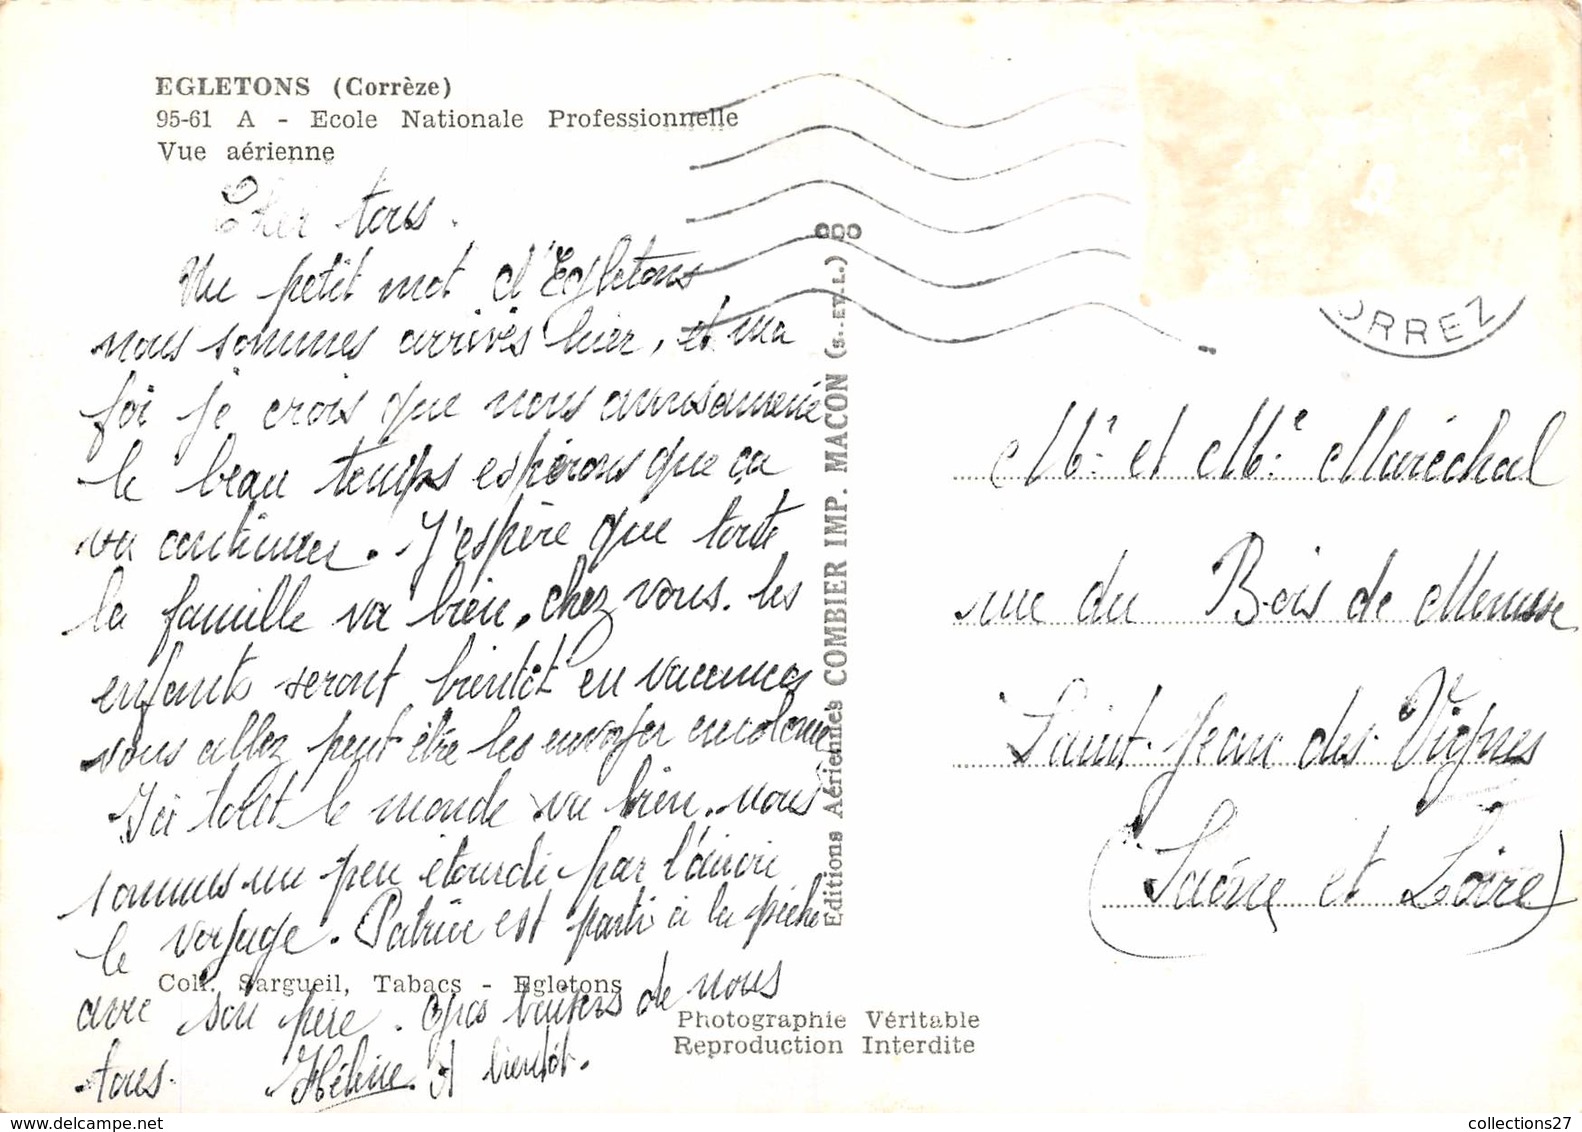 EGLETONS (Corrèze)
95-61 A - Ecole Nationale Professionnelle
Vue aérienne
Cher tous.
Un petit mot d'Egletons
nous sommes arrivés hier, et ma
foi je crois que nous avons amené
le beau temps espérons que ça
va continuer. J'espère que toute
la famille va bien, chez vous. les
enfants seront bientôt en vacances
vous allez peut être les envoyer en colonie
Ici tout le monde va bien. nous
sommes un peu étourdi par
le voyage. Patrice est parti à la pêche
avec son père. Gros baisers de nous
tous. Hélène. A bientôt.
Coll. Sargueil, Tabacs - Egletons
Photographie Véritable
Reproduction Interdite
Editions Aériennes COMBIER IMP. MACON (S.-ET-L.)
ORREZ
Mr. et Me. Maréchal
rue du Bois de Menusse
Saint Jean des Vignes
(Saône et Loire)
collections27